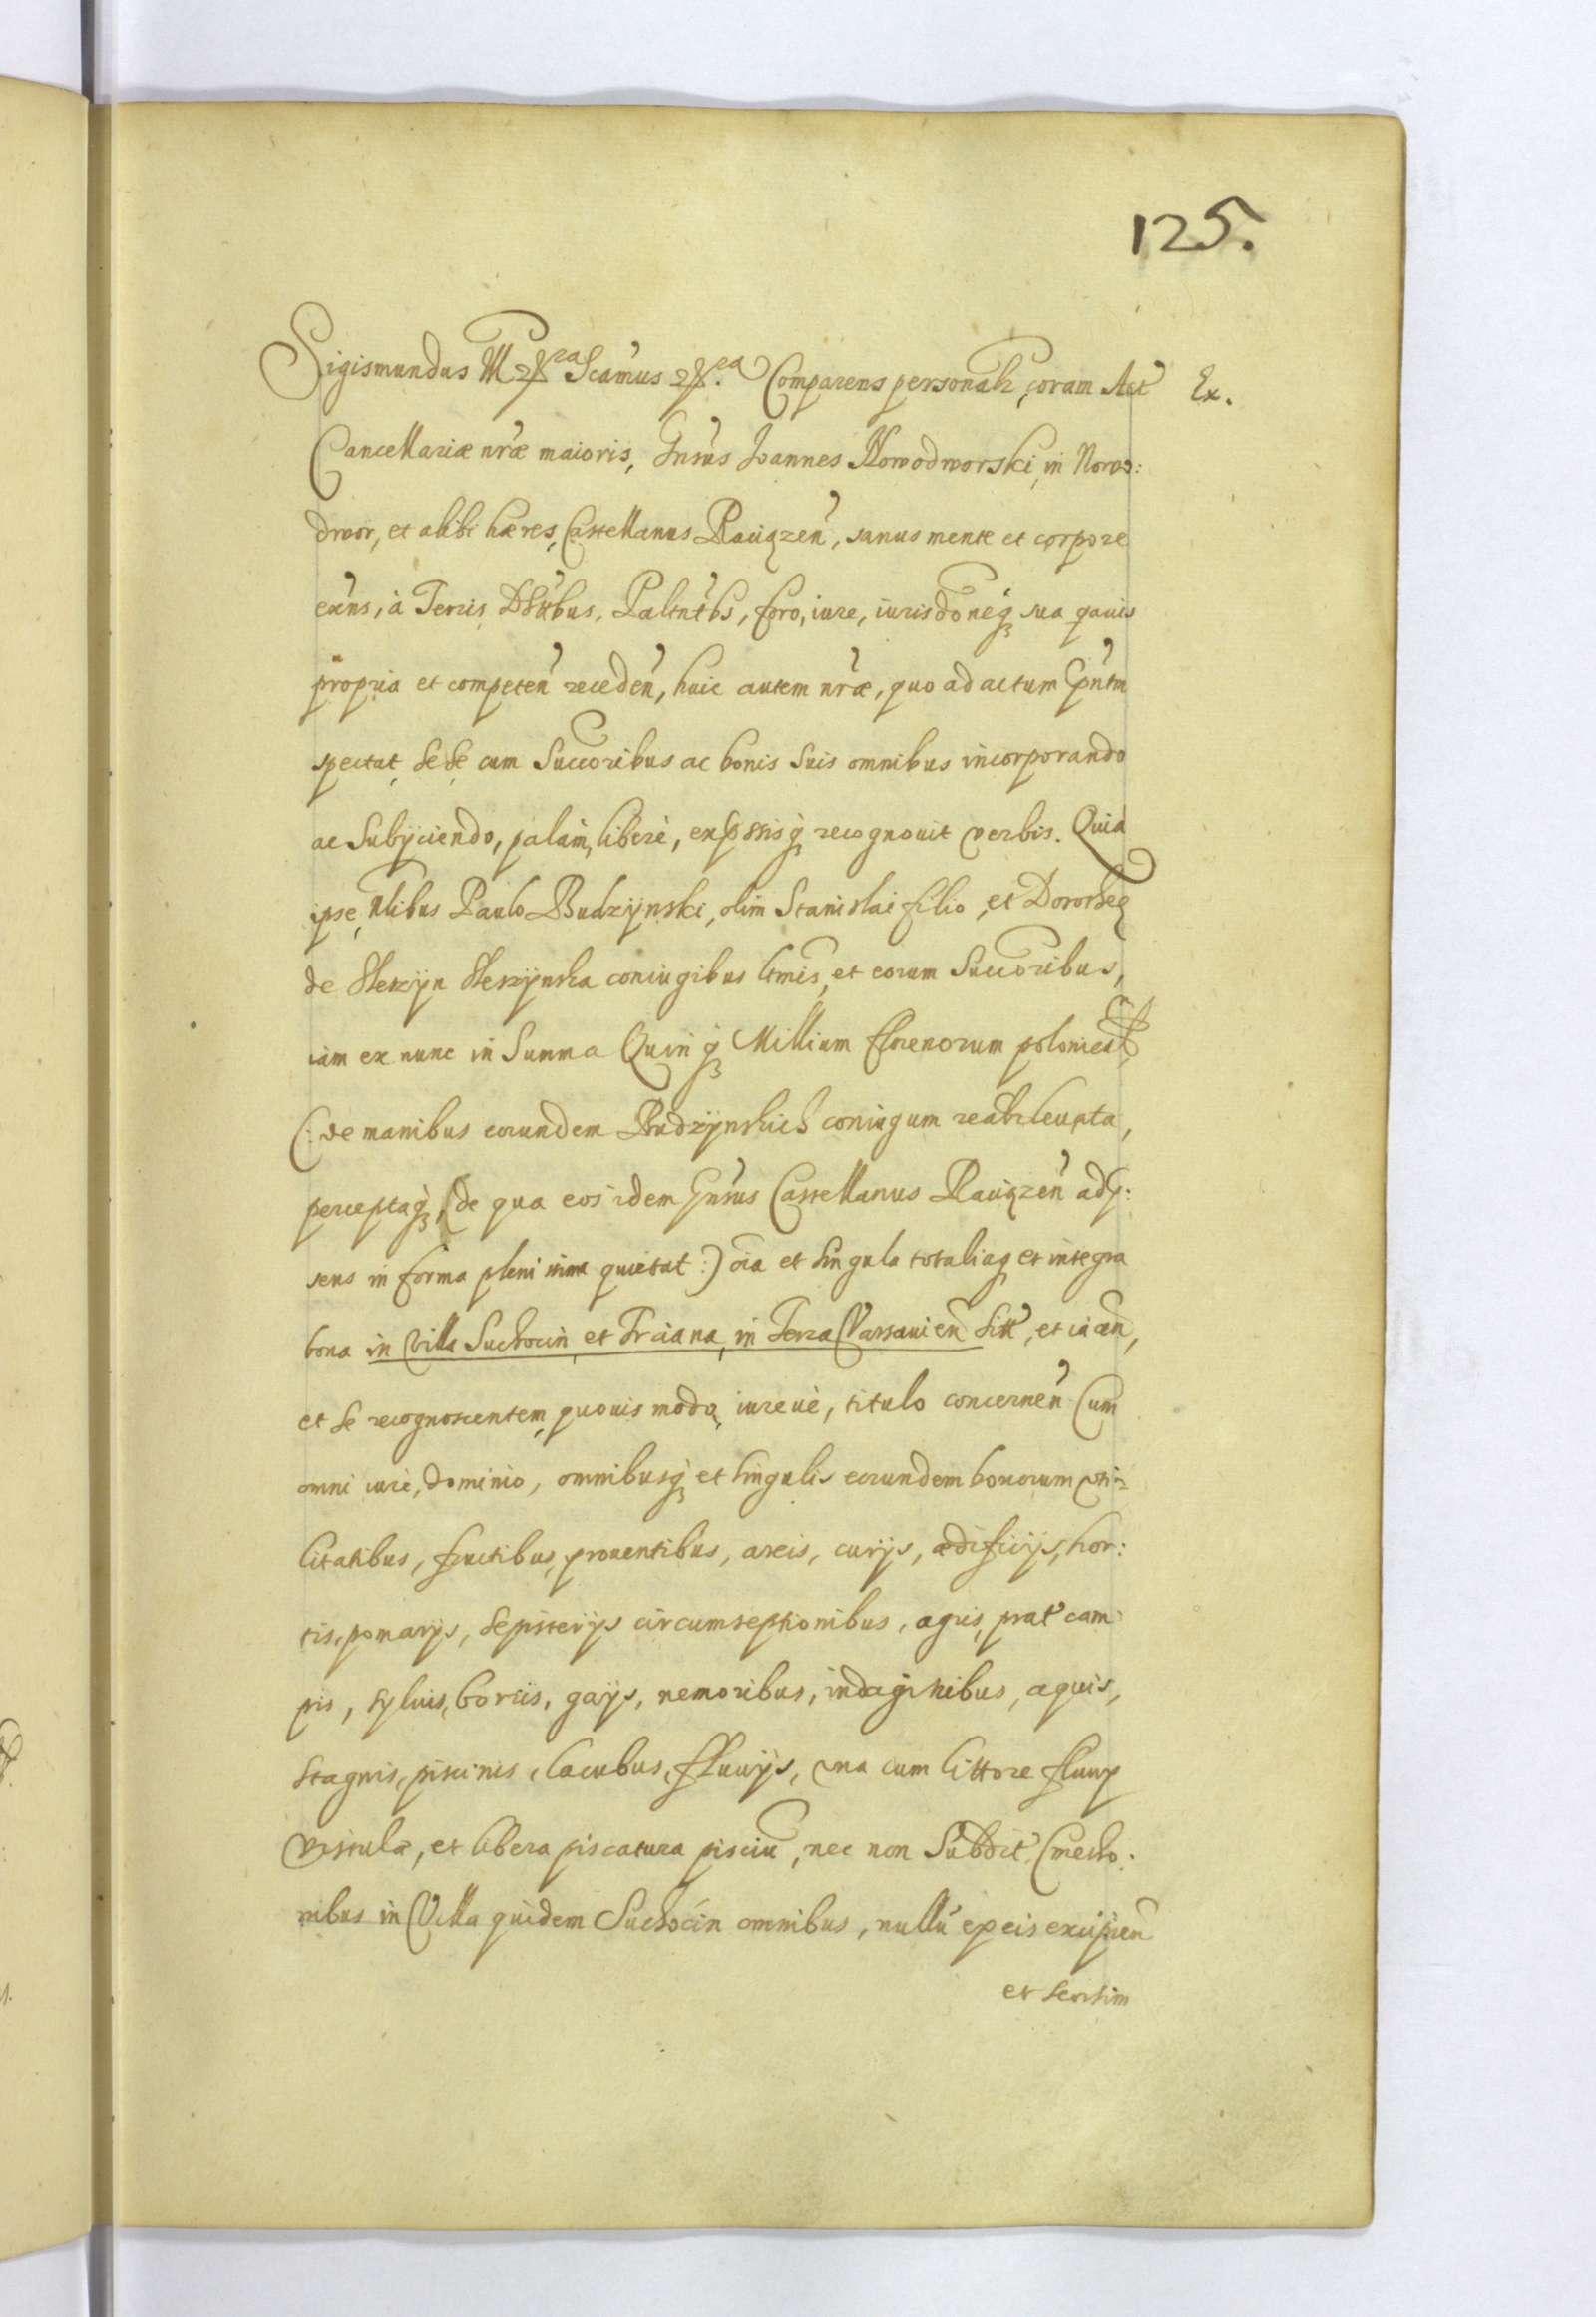 125.
Sigismundus III etc. Scamus etc. Comparens personalr, coram Act Ex.
Cancellariæ nræ maioris, Gnsus Joannes Nowodworski, in Nowo:
dwor, et alibi hæres, Castellanus Rauɡzen, sanus mente et corpore
exns, à Terris Dstibus, Paltntbs, foro, iure, iurisdoneq sua quauis
propria et competen receden, huic autem nræ, quo ad actum pntm
spectat, sese cum Succoribus ac bonis suis omnibus incorporando
ac Subÿciendo, palàm, liberè, expssisq recognouit verbis. Quia
ipse, Nlibus Paulo Budzÿnski, olim Stanislai filio, et Dorotheæ
de coniugibus ltmis, et eorum Succoribus,
iam ex nunc in Summa Quinq Millium florenorum polonical
(: de manibus eorundem Budzÿnskich coniugum realr leuata,
perceptaq, (de qua eos idem Gnsus Castellanus Rauɡzen adp:
sens in forma plenissima quietat :) oia et singula totaliaq et integra
bona in Villa Suchocin et Trciana, in Terra Varsauien sitt, et iacen,
et se recognoscentem, quouis modo, iureuè, titulo concernen Cum
omni iure, dominio, omnibusq et singulis eorundem bonorum vti-
litatibus, fructibus, prouentibus, areis, curÿs, ædificÿs, hor:
tis, pomarÿs, sepisterÿs circumseptionibus, agris, prat cam
pis, syluis, borris, gaÿs, nemoribus, indaginibus, aquis,
stagnis, piscinis, lacubus, fluuÿs, vna cum littore fluuÿ
Vistulæ, et libera piscatura pisciu, nec non Subdit Cmetho:
nibus in Villa quidem Suchocin omnibus, nullu ex eis excipien
et seorsim